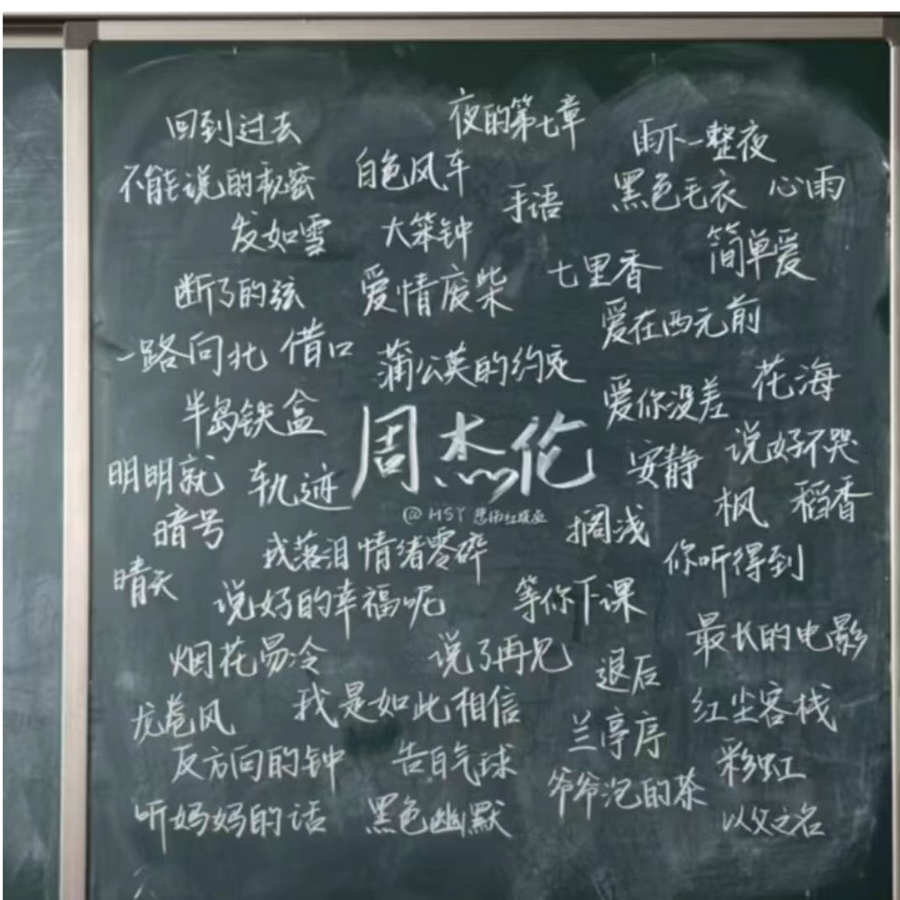 回到过去
夜的第七章
雨下一整夜
不能说的秘密
白色风车
手语
黑色毛衣
心雨
发如雪
大笨钟
简单爱
断了的弦
爱情废柴
七里香
爱在西元前
一路向北
借口
蒲公英的约定
花海
半岛铁盒
爱你没差
周杰伦
安静
说好不哭
明明就
轨迹
@HSY
枫
稻香
暗号
搁浅
我落泪情绪零碎
你听得到
晴天
说好的幸福呢
等你下课
最长的电影
烟花易冷
说了再见
退后
龙卷风
我是如此相信
兰亭序
红尘客栈
反方向的钟
告白气球
彩虹
爷爷泡的茶
听妈妈的话
黑色幽默
以父之名